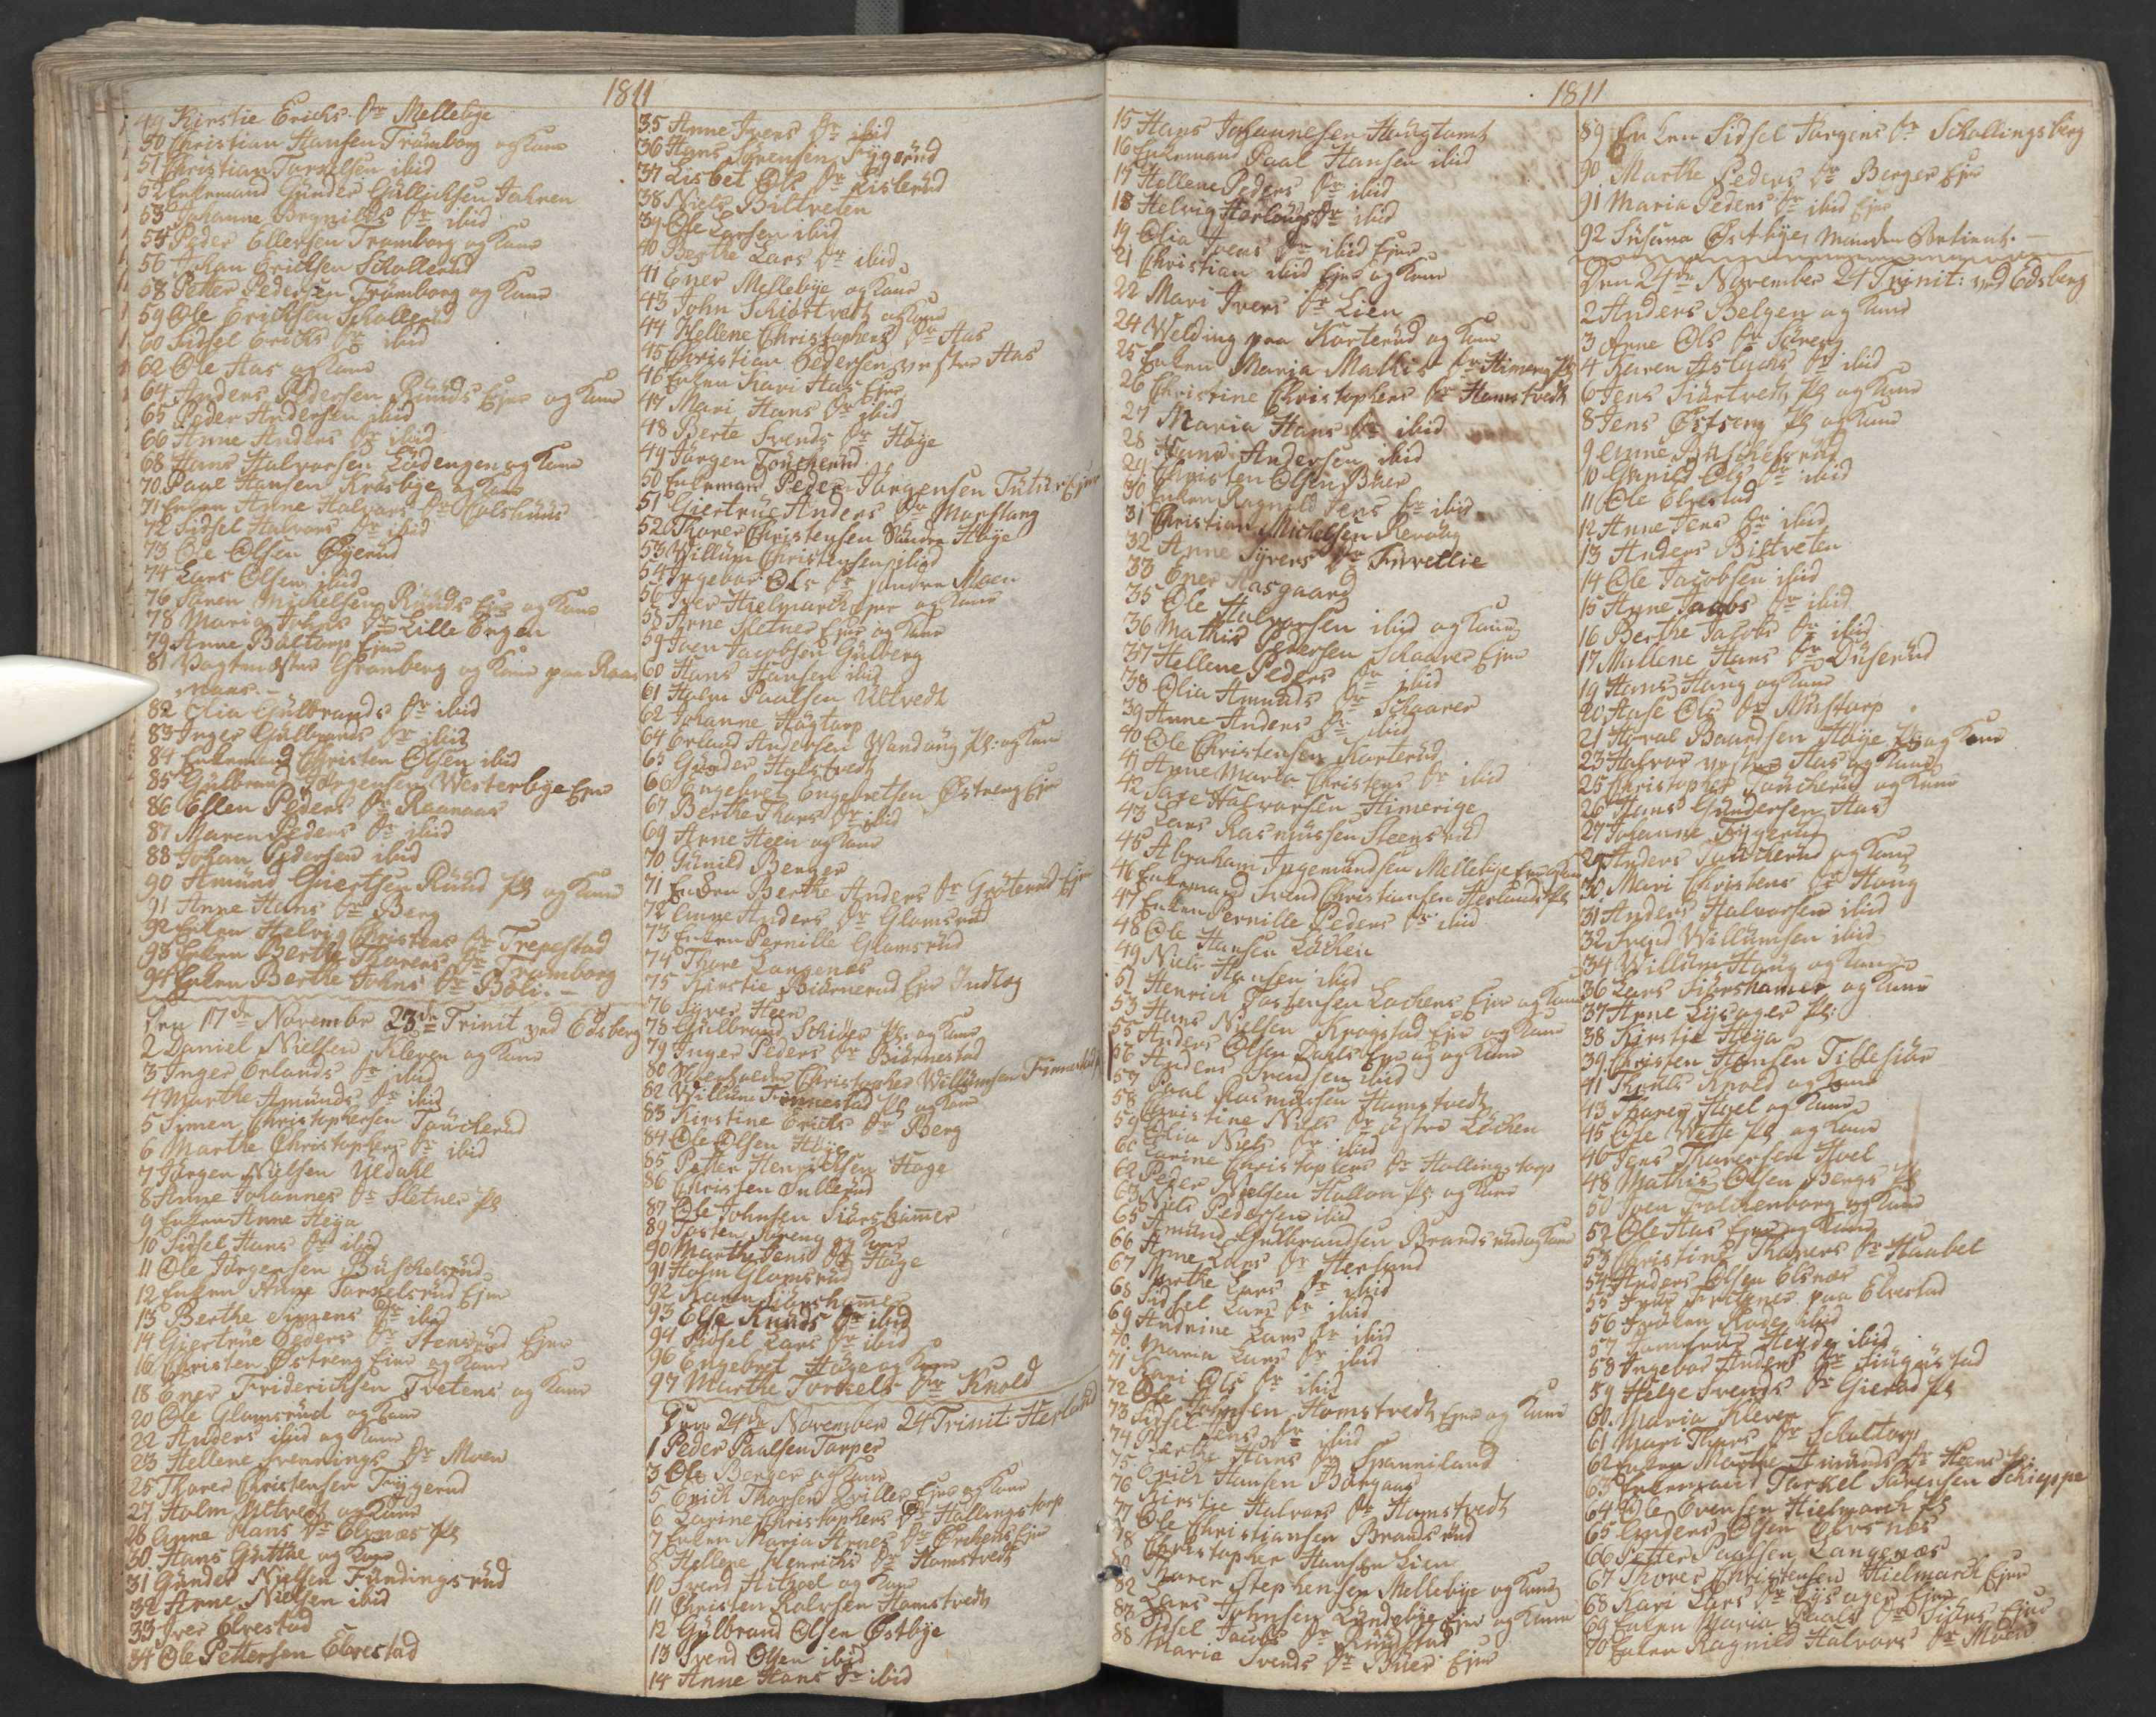 1811
49 Kirstie Erichs Dr Mellebye
50 Christian Hansen Tramborg og Kone
51 Christian Torkelsen ibid
52 Enkemand Gunder Gullichsen Jahren
53 Johanne Brynilds Dr ibid
54 Peder Ellersen Tramborg og Kone
56 Johan Erichsen Schollerud
58 Petter Pedersen Tramborg og Kone
59 Ole Erichsen Schollerud
60 Sidsel Erichs Dr ibid
62 Ole Aas og Kone
64 Anders Pedersen Ruuds Eje og Kone
65 Peder Andersen ibid
66 Anne Anders Dr ibid
68 Hans Halvorsen Lødengen og Kone
70 Paal Hansen Krosbye og Kone
71 Enken Anne Halvors Dr Colshuus
72 Sidsel Halvors Dr ibid
73 Ole Olsen Øgerud
74 Lars Olsen ibid
76 Søren Michelsen Ruuds Eje og Kone
78 Maria Johns Dr Lille Engen
79 Anne Baltorp Eje
81 Vagtmester Granberg og Kone paa Raa
naas.
82 Olia Gulbrands Dr ibid
83 Inger Gulbrands Dr ibid
84 Enkemand Christen Olsen ibid
85 Gulbrand Jørgensen Westerbye Eje
86 Ellen Peders Dr Raanaas
87 Maren Peders Dr ibid
88 Johan Pedersen ibid
90 Amund Giertsen Ruud Pl og Kone
91 Anne Hans Dr Berg
92 Enken Helvig Christens Dr Trepestad
93 Enken Berthe Thorers Dr Tramborg
94 Enken Berthe Johns Dr Boli.
Den 17de November 23de Trinit ved Edsberg
2 Daniel Nielsen Kleven og Kone
3 Inger Erlands Dr ibid
4 Marthe Amunds Dr ibid
5 Simen Christophersen Toucherud
6 Marthe Christophers Dr ibid
7 Jørgen Nielsen Uedahl
8 Anne Johannes Dr Sletner Pl
9 Enken Anne Heya
10 Sidsel Hans Dr ibid
11 Ole Jørgensen Buschelsrud
12 Enken Anne Torkelsrud Eje
13 Berthe Simens Dr ibid
14 Giertrue Peders Dr Stensrud Eje
16 Christen Østreng Eje og Kone
18 Ener Friderichsen Tvetens og Kone
20 Ole Glomsrud og Kone
22 Anders ibid og Kone
23 Hellene Svennings Dr Moen
25 Thorer Christensen Frygerud
27 Holm Ultvedt og Kone
28 Anne Hans Dr Elsnæs Pl
30 Hans Gutthe og Kone
31 Gunder Nielsen Fundingsrud
32 Arne Nielsen ibid
33 Iver Elvestad
34 Ole Pettersen Elvestad
35 Anne Ivers Dr ibid
36 Hans Sørensen Frygerud
37 Lisbet Ols Dr Listerud
38 Niels Biltveten
39 Ole Larsen ibid
40 Berthe Lars Dr ibid
41 Ener Mellebye og Kone
43 John Schiørtvedt og Kone
44 Hellene Christophers Dr Aas
45 Christian Pedersen vestre Aas
46 Enken Kari Aas Eje
47 Mari Hans Dr ibid
48 Berte Svends Dr Høye
49 Jørgen Toucherud
50 Enkemand Peder Jørgensen Tuter Eje
51 Giertrue Anders Dr Morstang
52 Thorer Christensen Søndre Høye
53 Willum Christensen ibid
54 Ingebor Ols Dr søndre Moen
56 Iver Hielmarck Eje og Kone
58 Arne Sletner Eje og Kone
59 Iven Jacobsen Gulberg
60 Hans Hansen ibid
61 Holm Paalsen Ultvedt
62 Johanne Hugtorp
64 Erland Andersen Wandaug Pl: og Kone
65 Gunder Holstvedt
66 Engebret Engebretsen Østreng Eje
67 Berthe Thors Dr ibid
69 Arne Heen og Kone
70 Gunild Berger
71 Enken Berthe Anders Dr Grøterud Eje
72 Anne Anders Dr Glomsrud
73 Enken Pernille Glomsrud
74 Thore Langenæs
75 Kirstie Biørnerud Eje Indlag
76 Syver Heen
78 Gulbrand Schider Pl: og Kone
79 Inger Peders Dr Biørnestad
80 Christopher Willumsen Finnestad
82 Willum Finnestad Pl og Kone
83 Kirstine Erichs Dr Berg
84 Ole Olsen Høye
85 Petter Henrichsen Høge
86 Christen Sullerud
87 Ole Johnsen Siørshammer
89 Tosten Søreng og Kone
90 Marthe Jens Dr Høge
91 Holm Glomsrud
92 Karen Siørshammer
93 Else Knuds Dr ibid
94 Sidsel Lars Dr ibid
96 Engebret Høge og Kone
97 Marthe Torkels Dr Knold
Den 24de November 24 Trinit: Herland
1 Peder Paalsen Torper
3 Ole Berger og Kone
5 Erich Thorsen Qviller Eje og Kone
6 Larine Christophers Dr Hallingstorp
7 Enken Maria Arnes Dr Eje
8 Hellene Henrichs Dr Homstvedt
10 Svend Hitzoel og Kone
11 Christen Rolvsen Homstvedt
12 Gulbrand Olsen Østbye
13 Svend Olsen ibid
14 Anne Hans Dr ibid
1811
15 Hans Johannesen Haugtomt
16 Enkemand Paal Hansen ibid
17 Hellene Peders Dr ibid
18 Helvig Herlougs Dr ibid
19 Olia Ivers Dr ibid Eje
21 Christian ibid Eje og Kone
22 Mari Ivers Dr Lien
24 Welding paa Korterud og Kone
25 Enken Maria Mathis Dr Himerig Pl
26 Christine Christophers Dr Homstvedt
27 Maria Hans Dr ibid
28 Hans Andersen ibid
29 Christen Olsen Buer
30 Enken Ragnild Jens Dr ibid
31 Christian Michelsen Revoug
32 Anne Syvers Dr Furrellie
33 Ener Aasgaard
35 Ole Halvorsen ibid og Kone
36 Mathis Pedersen Schaarer Eje
37 Hellene Peders Dr ibid
38 Olia Amunds Dr Schaarer
39 Anne Anders Dr ibid
40 Ole Christensen Korterud
41 Anne Maria Christens Dr ibid
42 Halvorsen Himerige
43 Lars Rasmussen Steensrud
45 Abraham Ingemundsen Mellebye Eje og Kone
46 Enkemand Svend Christiansen Herlands Pl
47 Enken Pernille Peders Dr ibid
48 Ole Hansen Løchen
49 Niels Hansen ibid
51 Henrich Tostensen Lochens Eje og Kone
53 Hans Nielsen Krogstad Eje og Kone
55 Anders Olsen Eje og Kone
56 Anders Svendsen ibid
57 Paal Rasmussen Homstvedt
58 Christine Niels Dr østre Løchen
59 Olia Niels Dr ibid
60 Larine Christophers Dr Hallingstorp
62 Peder Nielsen Hallon Pl: og Kone
63 Niels Pedersen ibid
65 Amund Gulbrandsen Brandsrud og Kone
66 Anne Lars Dr Hersund
67 Marthe Lars Dr ibid
68 Sidsel Lars Dr ibid
69 Andrine Lars Dr ibid
70 Maria Lars Dr ibid
71 Kari Ols Dr ibid
72 Ole Johnsen Homstvedt Eje og Kone
73 Sidsel Jens Dr ibid
74 Berthe Hans Dr Spanniland
75 Erich Hansen Borgaas
76 Kirstie Halvors Dr Homstvedt
77 Ole Christiansen Brandsrud
78 Christopher Hansen Lien
80 Thorer Stephensen Mellebye og Kone
82 Lars Johnsen Lundebye Eje og Kone
83 Sidsel Jacobs Dr
88 Maria Svends Dr Buer Eje
89 Enken Sidsel Jørgens Dr Schollingsberg
90 Marthe Peders Dr Berger Eje
91 Maria Peders Dr ibid Eje
92 Susana Østbye, Manden Patient.
Den 24de November 24 Trinit: ved Edsberg
2 Anders Belgen og Kone
3 Anne Ols Dr Søreng
4 Karen Aslachs Dr ibid
6 Jens Siørtvedt Pl og Kone
8 Jens Østreng Pl og Kone
9 Anne Buschelsrud
10 Gunild Ols Dr ibid
11 Ole Elvestad
12 Anne Jens Dr ibid
13 Anders Biltveten
14 Ole Jacobsen ibid
15 Anne Jacobs Dr ibid
16 Berthe Jacobs Dr ibid
17 Mallene Hans Dr Duserud
19 Hans Haug og Kone
20 Aase Ols Dr Mustorp
21 Baardsen Høye Pl og Kone
23 Halvor vestre Aas og Kone
25 Christopher Toucherud og Kone
26 Hans Gundersen Aas
27 Johanne Frygerud
29 Anders Toucherud og Kone
30 Mari Christens Dr Haug
31 Anders Halvorsen ibid
32 Svend Willumsen ibid
34 Willum Haug og Kone
36 Lars Siørshammer og Kone
37 Arne Lysager Pl:
38 Kirstie Heya
39 Christen Hansen Tittesiør
41 Knold og Kone
43 Thorer Hoel og Kone
45 Ole Wette Pl og Kone
46 Jens Thorersen Hoel
48 Mathis Olsen Bergs Pl
50 Iven Falchenborg og Kone
52 Ole Aas Eje og Kone
53 Christine Thorers Dr Haabel
54 Anders Olsen Elsnæs
55 Frue paa Elvestad
56 Frøken Rosen ibid
57 Jomfrue Heyde ibid
58 Ingebor Anders Dr Siugustad
59 Helge Svends Dr Gierud Pl
60 Maria Kleven
61 Mari Thors Dr Schaltorp
62 Enken Marthe Amunds Dr Heens Pl
63 Enkemand Torkel Sørensen Schieppe
64 Ole Evensen Hielmarck Pl
65 Anders Olsen Elvsnæs
66 Petter Paalsen Langenæs
67 Thorer Christensen Hielmarck Eje
68 Kari Lars Dr Lysager Eje
69 Enken Maria Paals Dr Siørs Eje
70 Enken Ragnild Halvors Dr Moen